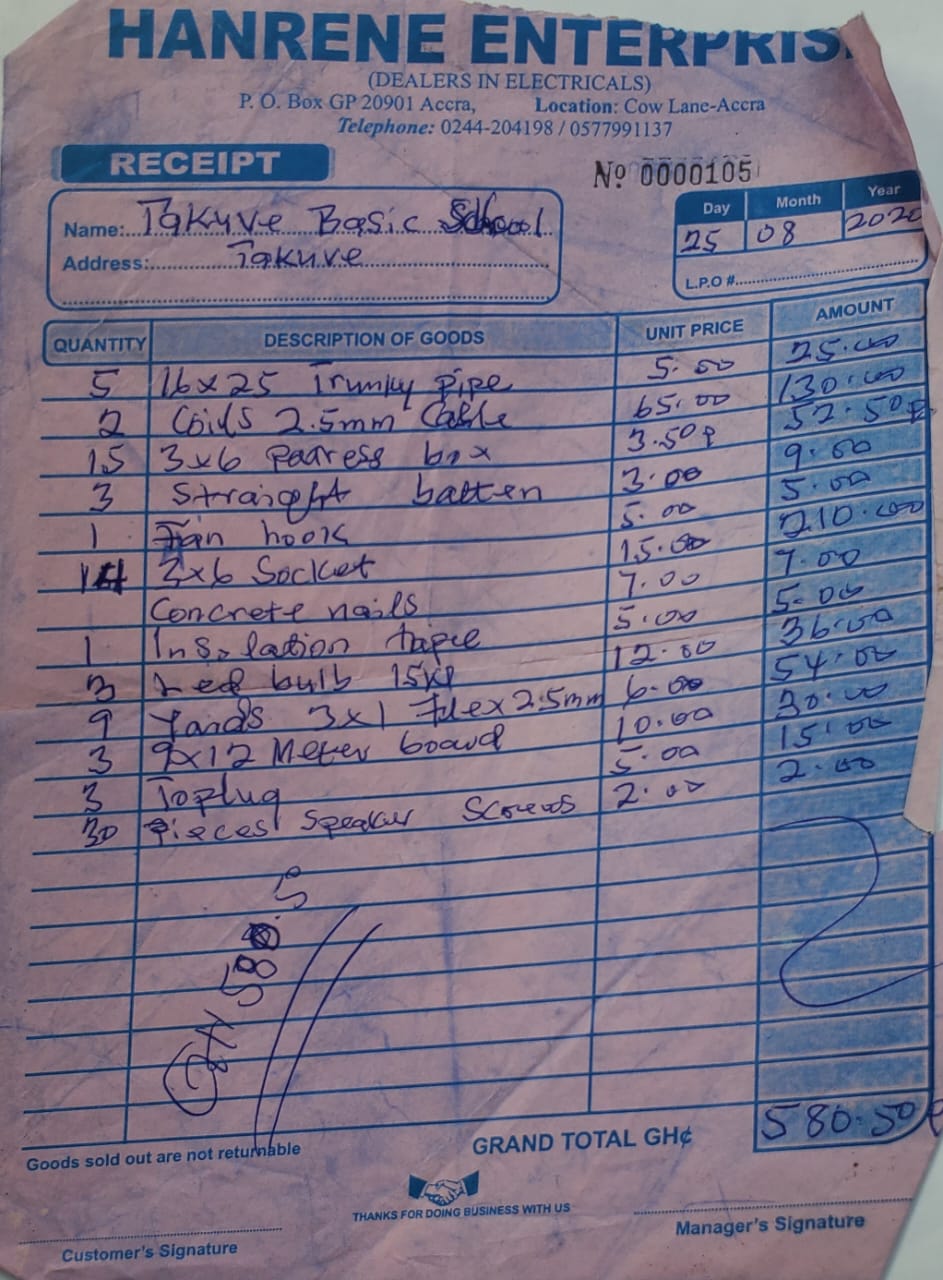 HANRENE ENTERPRIS
(DEALERS IN ELECTRICALS)
P. O. Box GP 20901 Accra, Location: Cow Lane-Accra
Telephone: 0244-204198 / 0577991137
RECEIPT
Nº 0000105
Name: Takuve Basic School
Address: Takuve
Day Month Year
25 08 2020
L.P.O #
QUANTITY DESCRIPTION OF GOODS UNIT PRICE AMOUNT
5 16x25 Trunky pipe 5.00 25.00
2 Coils 2.5mm Cable 65.00 130.00
15 3x6 box 3.50p 52.50p
3 Straight batten 3.00 9.00
1 Fan hook 5.00 5.00
14 3x6 Socket 15.00 210.00
Concrete nails 7.00 7.00
1 Insulation tape 5.00 5.00
3 Led bulb 12.00 36.00
9 Yards 3x1 Flex 2.5mm 6.00 54.00
3 9x12 Meter board 10.00 30.00
3 Toplug 5.00 15.00
30 Pieces Speaker Screws 2.00 2.00
GH 580.5
GRAND TOTAL GH¢ 580.50
Goods sold out are not returnable
THANKS FOR DOING BUSINESS WITH US
Customer's Signature
Manager's Signature